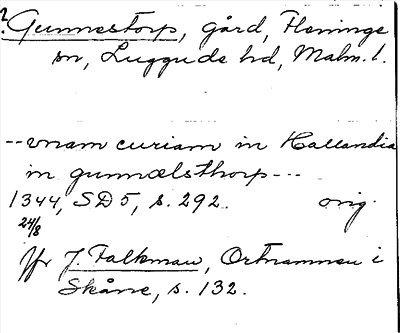 ? Gunnestorp, gård, Fleninge
sn, Luggude hd, Malm. l.
-- vnam curiam in Hallandia
in gunnælsthorp ---
1344, SD 5, s. 292. orig.
24/8
Jfr J. Falkman, Ortnamnen i
Skåne, s. 132.